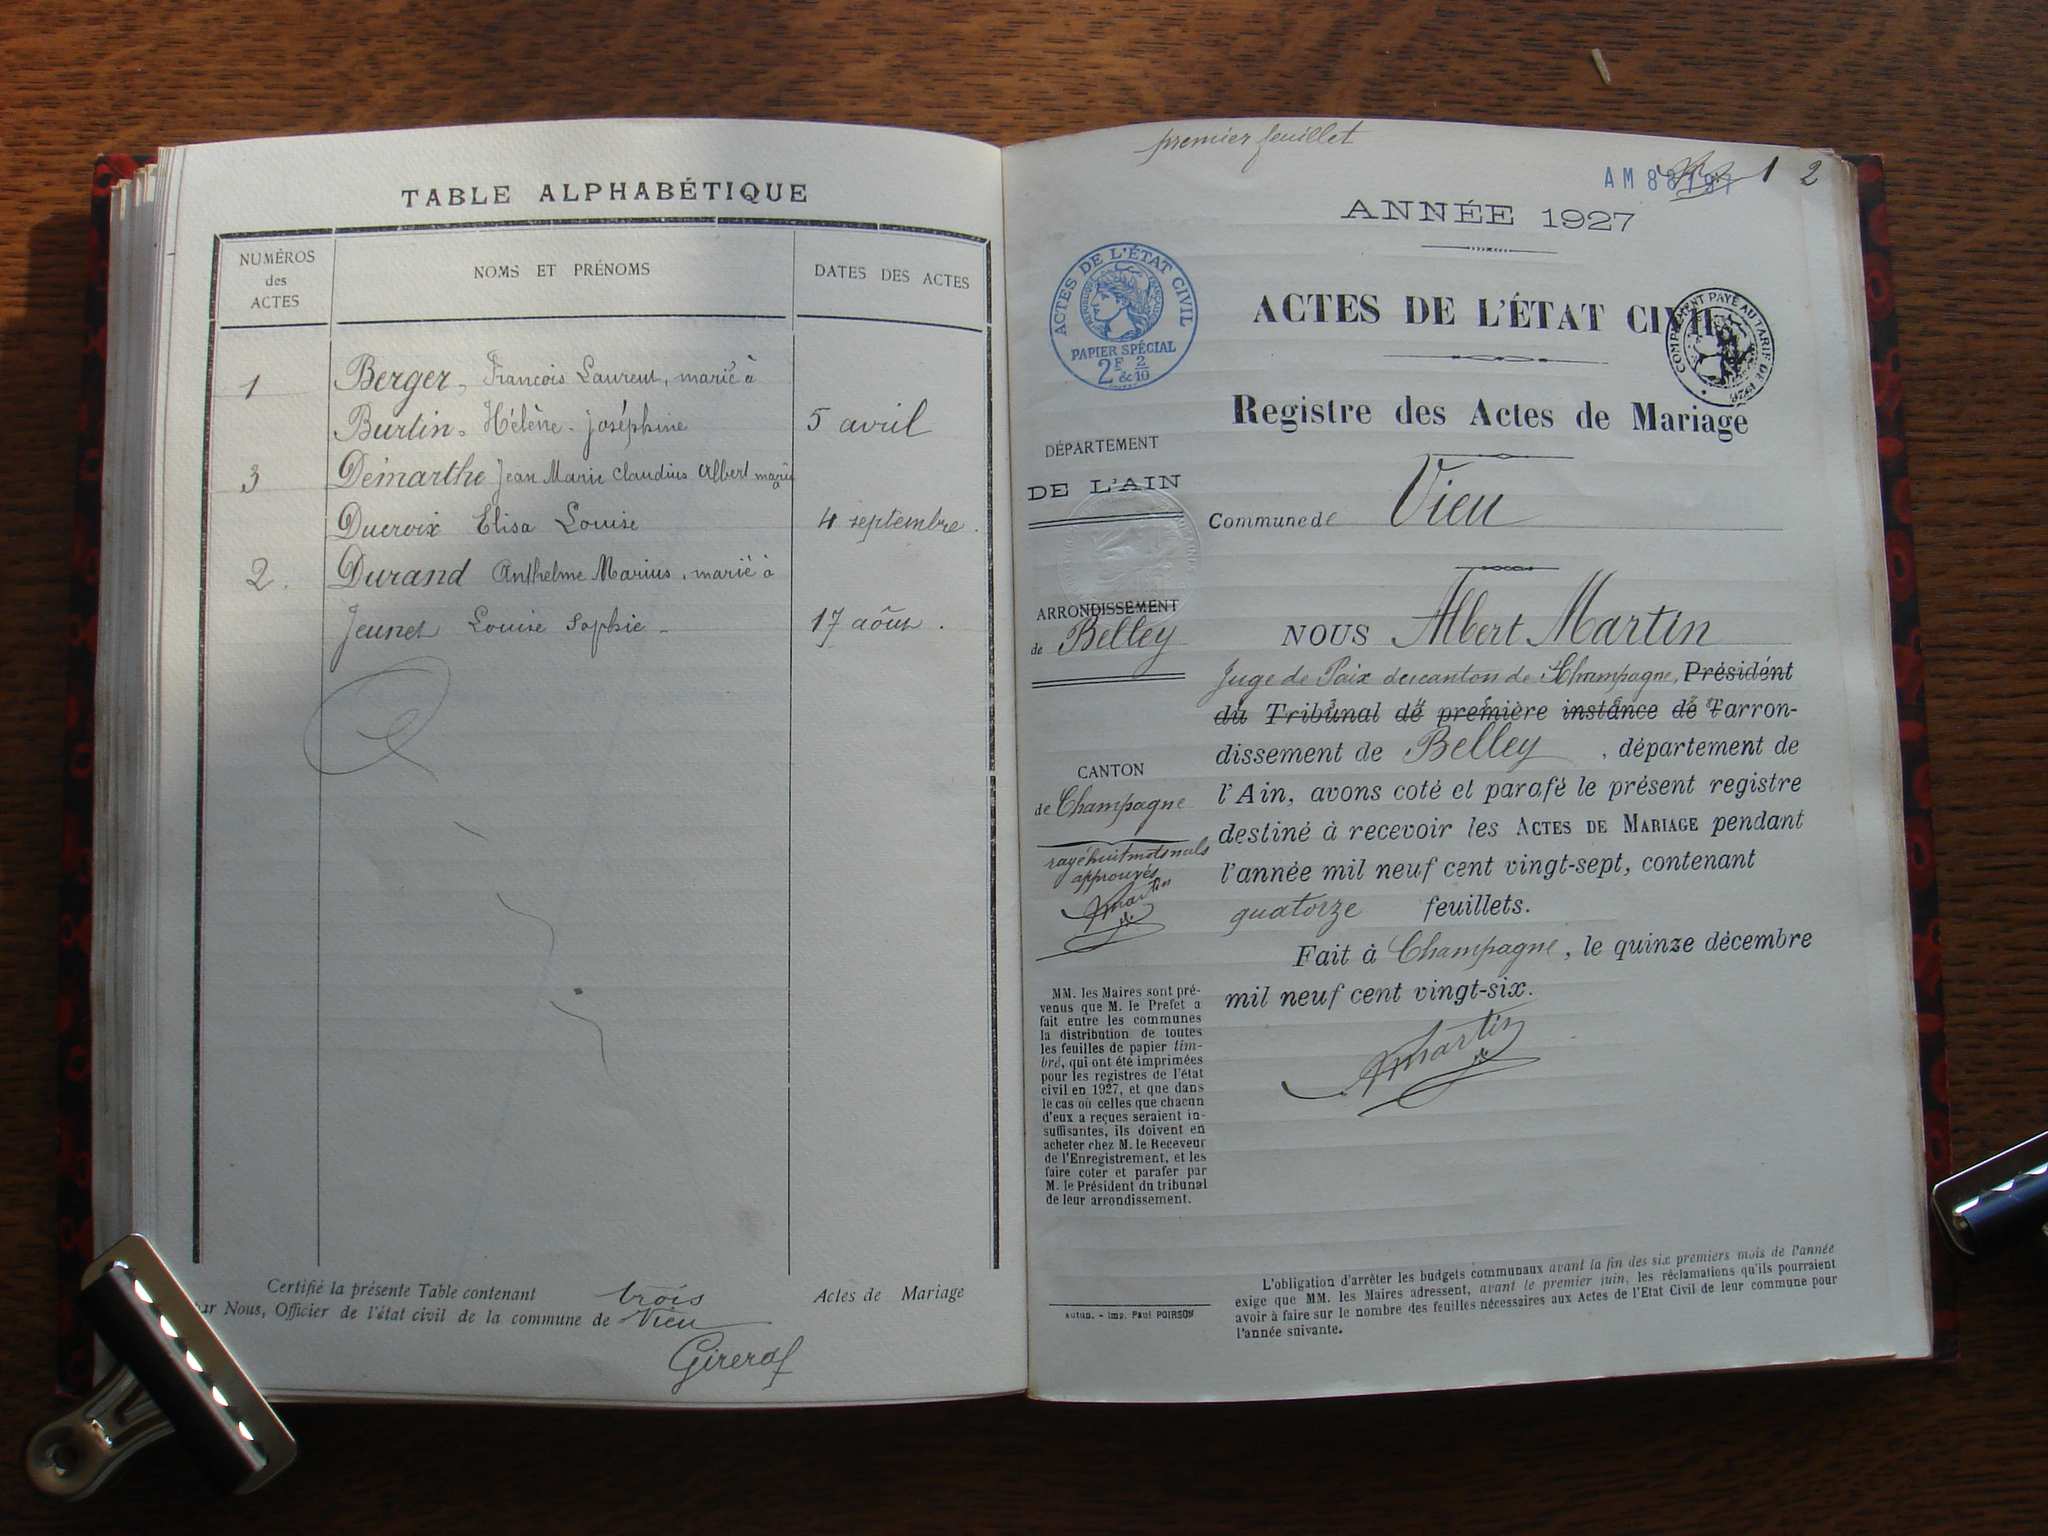 TABLE ALPHABÉTIQUE
NUMÉROS des ACTES
NOMS ET PRÉNOMS
DATES DES ACTES
1 Berger, François Laurent, marié à
Burtin. Hélène. Joséphine 5 avril
3 Démarthe Jean Marie Claudius Albert marié à
Ducroix Elisa Louise 4 septembre.
2. Durand Anthelme Marius, marié à
Jeunet Louise Sophie 17 août.
Certifié la présente Table contenant trois Actes de Mariage
par Nous, Officier de l'état civil de la commune de Vieu
Girerd
premier feuillet
1 2
ANNÉE 1927
ACTES DE L'ÉTAT CIVIL
RÉPUBLIQUE FRANÇAISE
PAPIER SPÉCIAL
2F & 2/10
ACTES DE L'ÉTAT CIVIL
COMPLÉMENT PAYÉ AU TARIF DE 1926
Registre des Actes de Mariage
DÉPARTEMENT
DE L'AIN
Commune de Vieu
ARRONDISSEMENT
de Belley
CANTON
de Champagne
rayé huit mots nuls
approuvés
AMartin
MM. les Maires sont pré-
venus que M. le Prefet a
fait entre les communes
la distribution de toutes
les feuilles de papier tim-
bré, qui ont été imprimées
pour les registres de l'état
civil en 1927, et que dans
le cas où celles que chacun
d'eux a reçues seraient in-
suffisantes, ils doivent en
acheter chez M. le Receveur
de l'Enregistrement, et les
faire coter et parafer par
M. le Président du tribunal
de leur arrondissement.
Autun. - Imp. Paul POIRSON
NOUS Albert Martin
Juge de Paix du canton de Champagne, Président
du Tribunal de première instance de l'arron-
dissement de Belley, département de
l'Ain, avons coté et parafé le présent registre
destiné à recevoir les ACTES DE MARIAGE pendant
l'année mil neuf cent vingt-sept, contenant
quatorze feuillets.
Fait à Champagne, le quinze décembre
mil neuf cent vingt-six.
AMartin
L'obligation d'arrêter les budgets communaux avant la fin des six premiers mois de l'année
exige que MM. les Maires adressent, avant le premier juin, les réclamations qu'ils pourraient
avoir à faire sur le nombre des feuilles nécessaires aux Actes de l'Etat Civil de leur commune pour
l'année suivante.